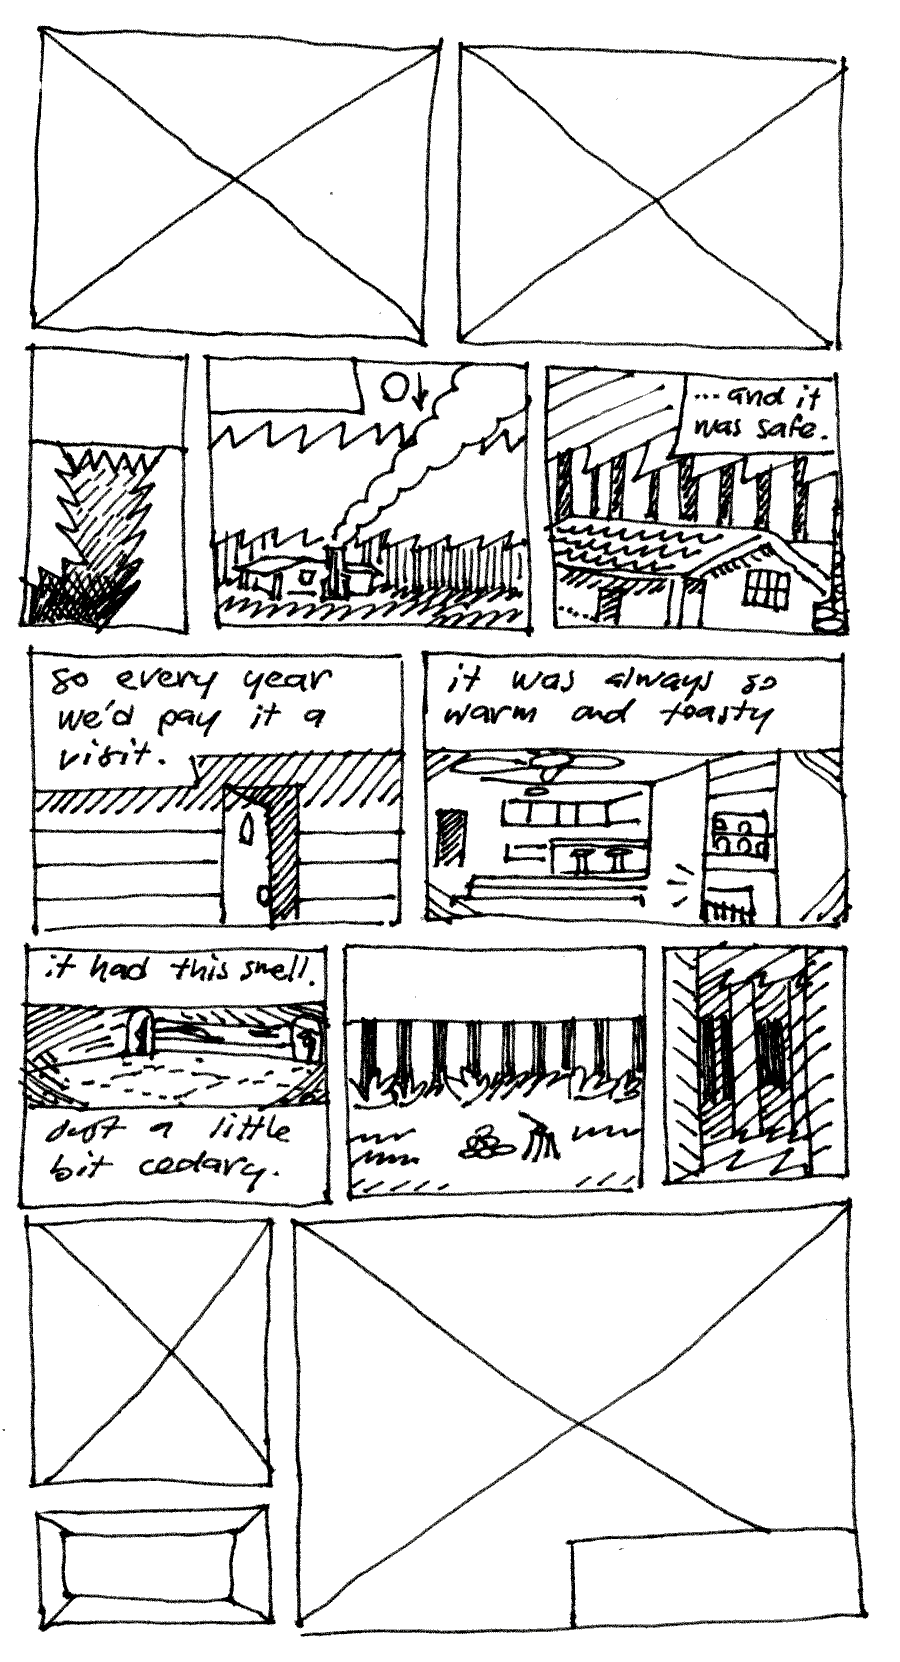 ...and it
was safe.
so every year
we'd pay it a
visit.
it was always so
warm and toasty
it had this smell.
just a little
bit cedary.